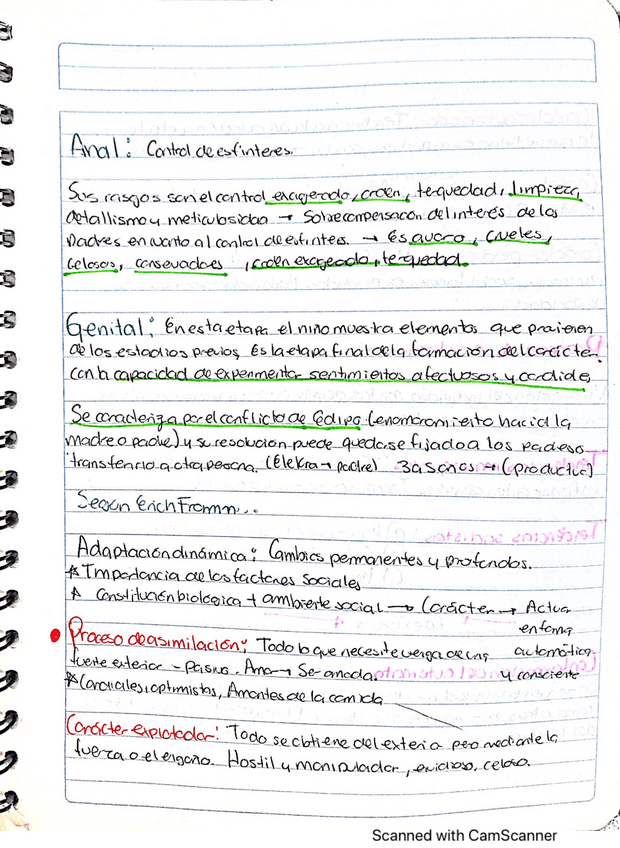 Anal: Control de esfinteres.
Sus rasgos son el control exagerado, orden, terquedad, limpieza,
detallismo y meticulosidad → Sobrecompensación del interés de los
Padres en cuanto al control de esfinteres. → Es avaro, crueles,
celosos, conservadores, orden exagerado, terquedad.
Genital: En esta etapa el niño muestra elementos que provienen
de los estadios previos, Es la etapa final de la formación del carácter.
con la capacidad de experimentar sentimientos afectuosos y cordiales
Se caracteriza por el conflicto de Edipo (enamoramiento hacia la
madre o padre) y su resolución puede quedarse fijado a los padres o
transferirlo a otra persona. (Elektra → padre) 3a 5 anos → (productivo)
Según Erich Fromm...
Adaptación dinámica: Cambios permanentes y profundos.
* Importancia de los factores sociales
* Constitución biológica + ambiente social → Carácter → Actua
en forma
Proceso de asimilación: Todo lo que necesite venga de una automática
fuente exterior - pasivo. Amor → Ser amado. y consciente
* Cordiales, optimistas, Amantes de la comida
Carácter explotador: Todo se obtiene del exterior pero mediante la
fuerza o el engaño. Hostil y manipulador, envidioso, celoso.
Scanned with CamScanner